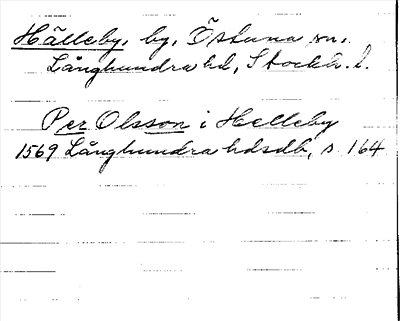 Hälleby, by, Östuna sn,
Långhundra hd, Stockh. l.
Per Olsson i Helleby
1569 Långhundra hdsdb, s. 164